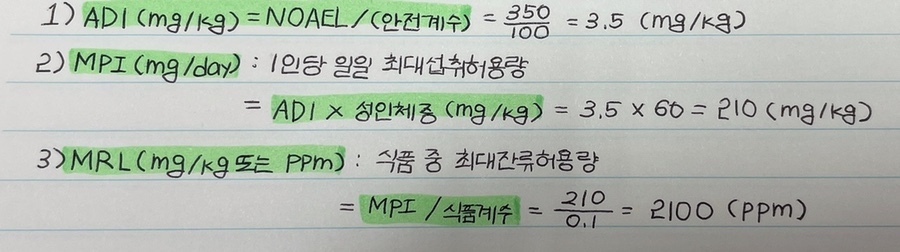 1) ADI (mg/kg) = NOAEL / (안전계수) = 350/100 = 3.5 (mg/kg)
2) MPI (mg/day) : 1인당 일일 최대섭취허용량
= ADI × 성인체중 (mg/kg) = 3.5 × 60 = 210 (mg/kg)
3) MRL (mg/kg 또는 PPm) : 식품 중 최대잔류허용량
= MPI / 식품계수 = 210/0.1 = 2100 (PPm)